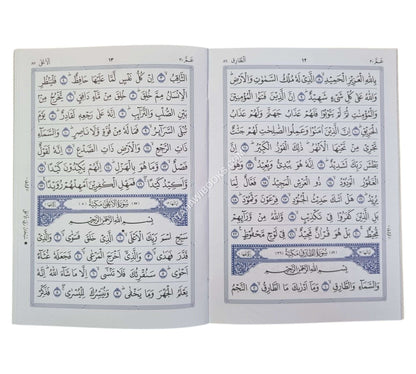 عم ٣٠ ١٢ الطارق ٨٦
بِاللّٰهِ الْعَزِيْزِ الْحَمِيْدِ ۝ الَّذِيْ لَهٗ مُلْكُ السَّمٰوٰتِ وَالْاَرْضِ
وَاللّٰهُ عَلٰى كُلِّ شَيْءٍ شَهِيْدٌ ۝ اِنَّ الَّذِيْنَ فَتَنُوا الْمُؤْمِنِيْنَ
وَالْمُؤْمِنٰتِ ثُمَّ لَمْ يَتُوْبُوْا فَلَهُمْ عَذَابُ جَهَنَّمَ وَلَهُمْ عَذَابُ
الْحَرِيْقِ ۝ اِنَّ الَّذِيْنَ اٰمَنُوْا وَعَمِلُوا الصّٰلِحٰتِ لَهُمْ جَنّٰتٌ
تَجْرِيْ مِنْ تَحْتِهَا الْاَنْهٰرُ ذٰلِكَ الْفَوْزُ الْكَبِيْرُ ۝ اِنَّ
بَطْشَ رَبِّكَ لَشَدِيْدٌ ۝ اِنَّهٗ هُوَ يُبْدِئُ وَيُعِيْدُ ۝ وَهُوَ
الْغَفُوْرُ الْوَدُوْدُ ۝ ذُو الْعَرْشِ الْمَجِيْدُ ۝ فَعَّالٌ لِّمَا
يُرِيْدُ ۝ هَلْ اَتٰىكَ حَدِيْثُ الْجُنُوْدِ ۝ فِرْعَوْنَ وَثَمُوْدَ ۝
بَلِ الَّذِيْنَ كَفَرُوْا فِيْ تَكْذِيْبٍ ۝ وَّاللّٰهُ مِنْ وَّرَآئِهِمْ
مُّحِيْطٌ ۝ بَلْ هُوَ قُرْاٰنٌ مَّجِيْدٌ ۝ فِيْ لَوْحٍ مَّحْفُوْظٍ ۝
سُوْرَةُ الطَّارِقِ مَكِّيَّةٌ
بِسْمِ اللّٰهِ الرَّحْمٰنِ الرَّحِيْمِ
وَالسَّمَآءِ وَالطَّارِقِ ۝ وَمَآ اَدْرٰىكَ مَا الطَّارِقُ ۝ النَّجْمُ
عم ٣٠ ١٣ الاعلى ٨٧
الثَّاقِبُ ۝ اِنْ كُلُّ نَفْسٍ لَّمَّا عَلَيْهَا حَافِظٌ ۝ فَلْيَنْظُرِ
الْاِنْسَانُ مِمَّ خُلِقَ ۝ خُلِقَ مِنْ مَّآءٍ دَافِقٍ ۝ يَّخْرُجُ مِنْۢ
بَيْنِ الصُّلْبِ وَالتَّرَآئِبِ ۝ اِنَّهٗ عَلٰى رَجْعِهٖ لَقَادِرٌ ۝ يَوْمَ
تُبْلَى السَّرَآئِرُ ۝ فَمَا لَهٗ مِنْ قُوَّةٍ وَّلَا نَاصِرٍ ۝ وَالسَّمَآءِ
ذَاتِ الرَّجْعِ ۝ وَالْاَرْضِ ذَاتِ الصَّدْعِ ۝ اِنَّهٗ لَقَوْلٌ
فَصْلٌ ۝ وَّمَا هُوَ بِالْهَزْلِ ۝ اِنَّهُمْ يَكِيْدُوْنَ كَيْدًا ۝
وَّاَكِيْدُ كَيْدًا ۝ فَمَهِّلِ الْكٰفِرِيْنَ اَمْهِلْهُمْ رُوَيْدًا ۝
سُوْرَةُ الْاَعْلٰى مَكِّيَّةٌ
بِسْمِ اللّٰهِ الرَّحْمٰنِ الرَّحِيْمِ
سَبِّحِ اسْمَ رَبِّكَ الْاَعْلَى ۝ الَّذِيْ خَلَقَ فَسَوّٰى ۝ وَالَّذِيْ
قَدَّرَ فَهَدٰى ۝ وَالَّذِيْٓ اَخْرَجَ الْمَرْعٰى ۝ فَجَعَلَهٗ غُثَآءً
اَحْوٰى ۝ سَنُقْرِئُكَ فَلَا تَنْسٰٓى ۝ اِلَّا مَا شَآءَ اللّٰهُ اِنَّهٗ
يَعْلَمُ الْجَهْرَ وَمَا يَخْفٰى ۝ وَنُيَسِّرُكَ لِلْيُسْرٰى ۝ فَذَكِّرْ